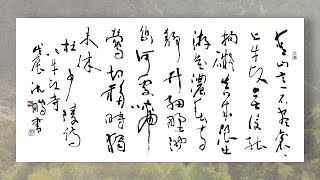 青山意不盡衮衮
上牛頭無復能
拘礙真成浪出
游花濃春寺
靜竹細野池
幽何處啼
鶯切移時獨
未休
杜少陵詩
上牛頭寺
戊辰沈鵬書